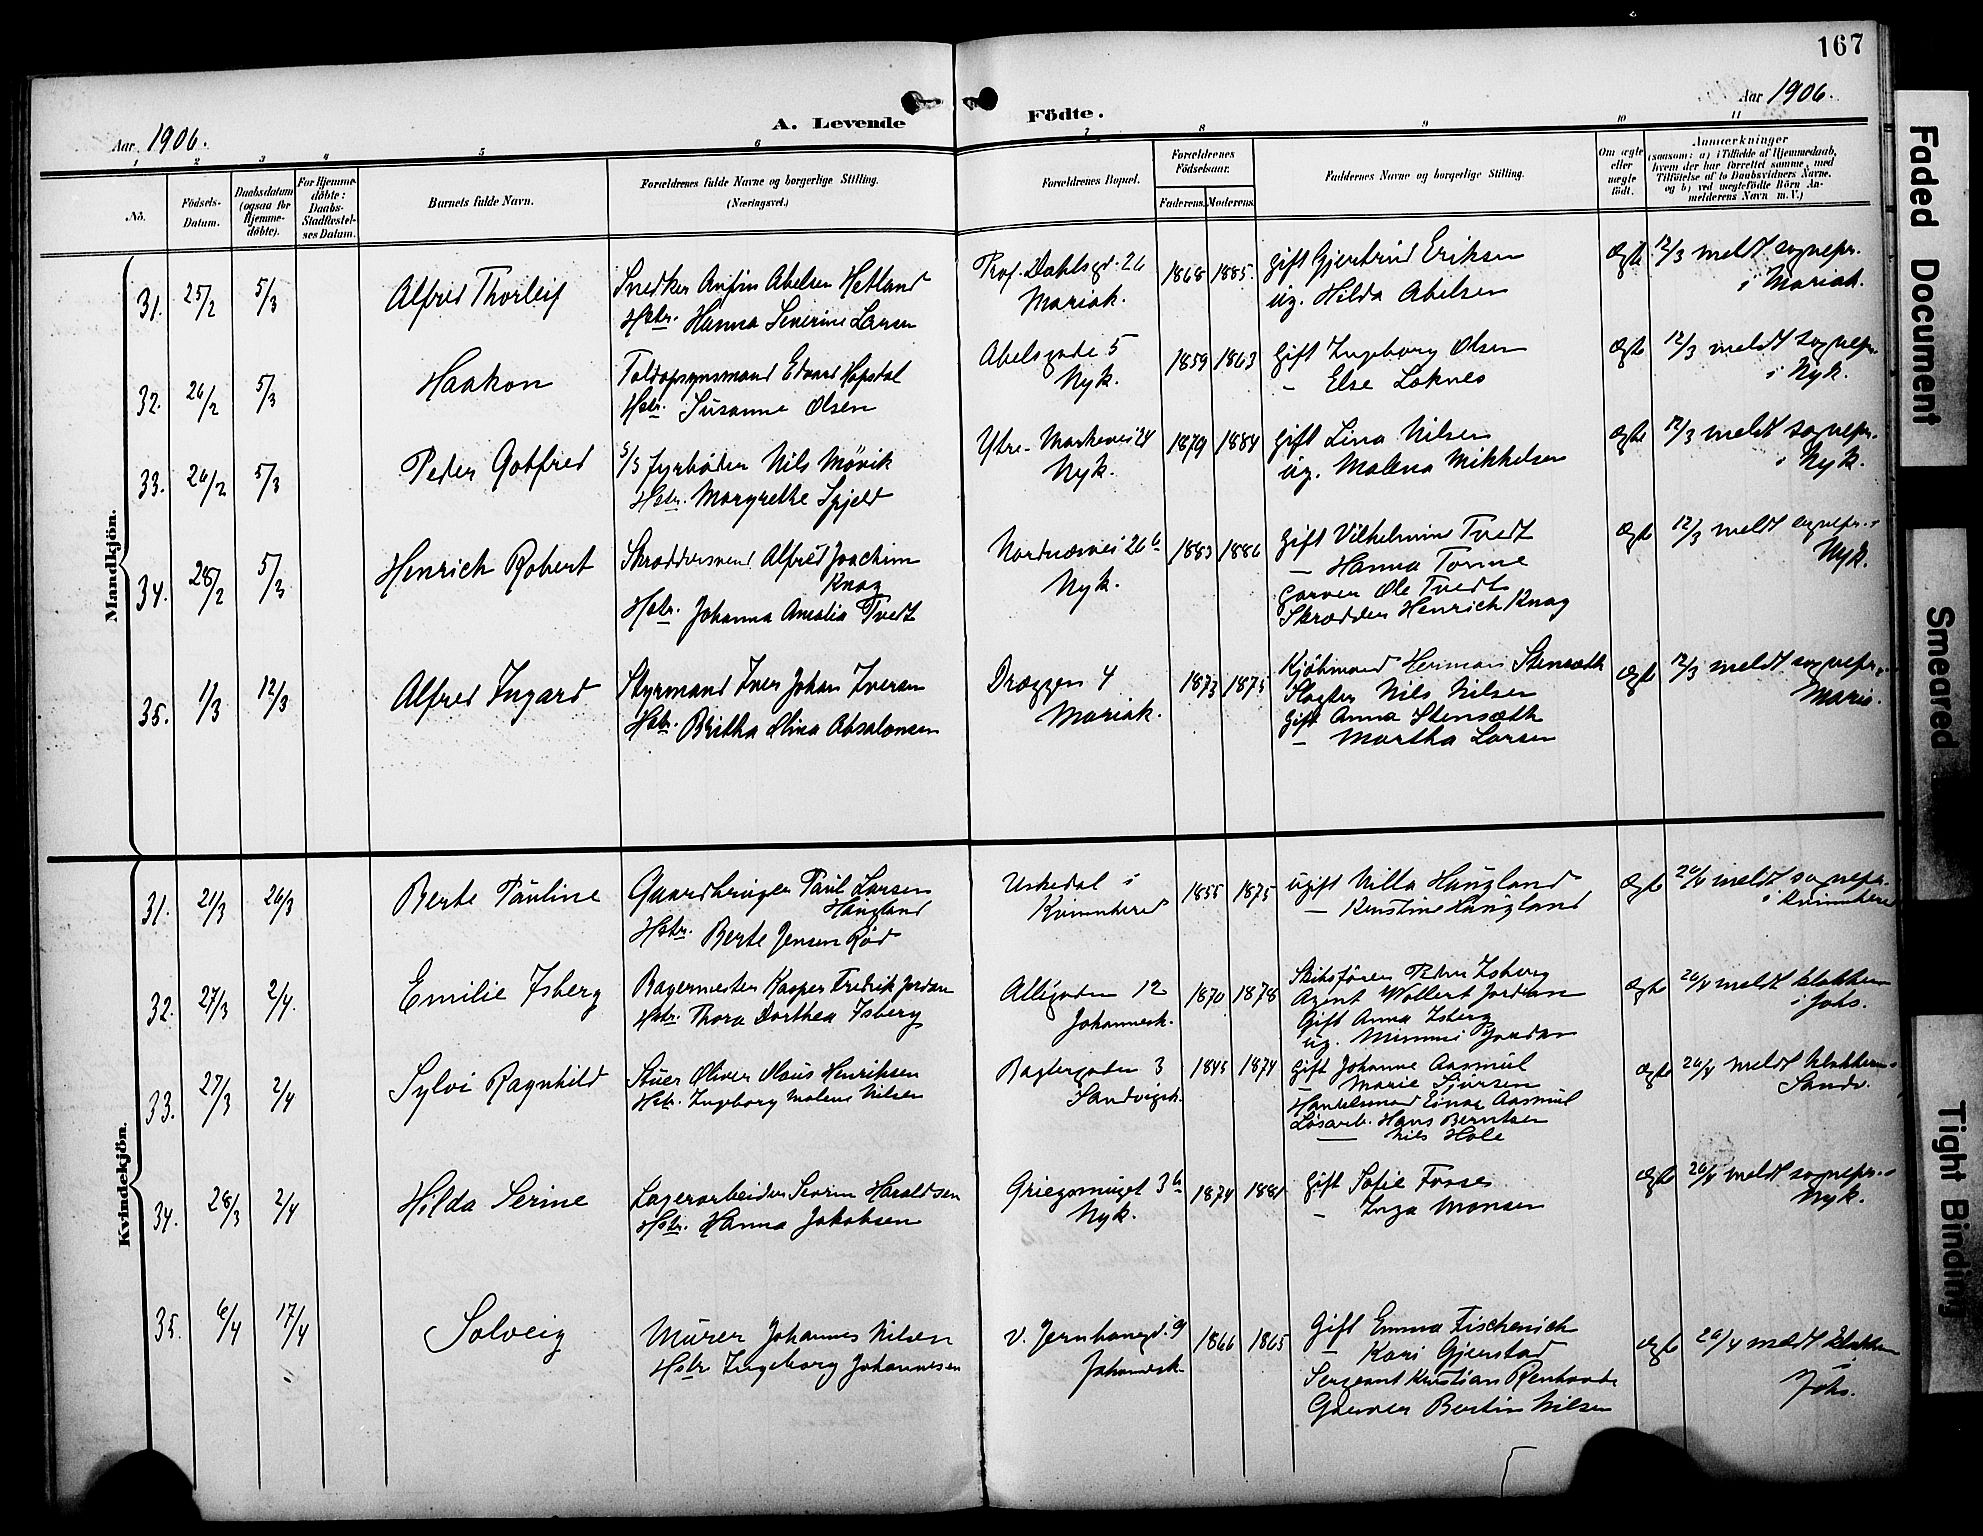 167
Aar 1906.
A. Levende Födte.
Aar 1906.
1 2 3 4 5 6 7 8 9 10 11
No.
Födsels-Datum.
Daabsdatum (ogsaa for Hjemmedöbte).
For Hjemmedöbte: Daabs-Stadfæstelses Datum.
Barnets fulde Navn.
Forældrenes fulde Navne og borgerlige Stilling.
(Næringsvei.)
Forældrenes Bopæl.
Forældrenes Födselsaar.
Faderens. Moderens.
Faddernes Navne og borgerlige Stilling.
Om ægte eller uægte födt.
Anmærkninger
(saasom: a) i Tilfælde af Hjemmedaab, hvem der har forrettet samme, med Tilföielse af to Daabsvidners Navne, og b) ved uægtefödte Börn Anmelderens Navn m. V.)
Mandkjön.
31. 25/2 5/3 Alfred Thorleif
Snedker Anfin Abelsen Hetland
Hstr. Hanna Severine Larsen
Prof. Dahlsgd. 26
Mariak.
1868 1885.
gift Gjertrud Eriksen
ug. Hilda Abelsen
Ægte 12/3 meldt sognepr.
i Mariak.
32. 26/2 5/3 Haakon
Toldopsynsmand Edvard Hopsdal
Hstr. Susanne Olsen
Abelsgade 5
Nyk.
1859 1863
Gift Ingeborg Olsen
— Else Loknes
Ægte 12/3 meldt sognepr.
i Nyk.
33. 26/2 5/3 Peder Gotfred
S/S Fyrbøder Nils Møvik
Hstr. Margrethe Spjeld
Ytre-Markevei 24
Nyk.
1879 1884
gift Lina Nilsen
ug. Malena Mikkelsen
Ægte 12/3 meldt sognepr.
i Nyk.
34. 28/2 5/3 Henrich Robert
Skræddersvend Alfred Joachim
Knag
Hstr. Johanna Amalia Tvedt
Nordnæsvei 26 b
Nyk.
1883 1886
gift Vilhelmine Tvedt
— Hanna Tonne
Garver Ole Tvedt
Skrædder Henrich Knag
Ægte 12/3 meldt sognepr. i
Nyk.
35. 1/3 12/3 Alfred Ingard
Styrmand Iver Johan Iversen
Hstr. Britha Olina Absalonsen
Dræggen 4
Mariak.
1873 1875
Kjøbmand Herman Stensæth
Slagter Nils Nilsen
gift Anna Stensæth
— Martha Larsen
Ægte 12/3 meldt sognepr. i
Maria.
Kvindekjön.
31. 21/3 26/3 Berte Pauline
Gaardbruger Paul Larsen
Haugland
Hstr. Berte Jensen Rød
Uskedal i
Kvinnhered
1855 1875
ugift Nilla Haugland
— Kristine Haugland
Ægte 20/4 meldt sognepr.
i Kvinnhered
32. 27/3 2/4. Emilie Isberg
Bagermester Kasper Fredrik Jordan
Hstr. Thora Dorthea Isberg
Allégaden 12
Johannesk.
1870 1878
Skibsfører Peder Isberg
Agent Wollert Jordan
Gift Anna Isberg
ug. Mimmi Jordan
Ægte 20/4 meldt klokkeren
i Johs.
33. 27/3 2/4 Sylvi Ragnhild
Stuer Oliver Maus Henriksen
Hstr. Ingeborg Malene Nilsen
Baglergaden 3
Sandvigsk.
1845 1874
gift Johanne Aasmul
— Marie Sjursen
Handelsmand Einar Aasmul
Løsarb. Hans Berntsen
— Nils Hole
Ægte 20/4 meldt klokkeren i
Sandv.
34. 28/3 2/4 Hilda Serine
Lagerarbeider Severin Haraldsen
Hstr. Hanna Jakobsen
Griegsmuget 3 b
Nyk.
1874 1881
gift Sofie Fosse
— Inga Monsen
Ægte 20/4 meldt sognepr. i
Nyk.
35. 6/4 17/4 Solveig
Murer Johannes Nilsen
Hstr Ingeborg Johannesen
v. Jernbanegd. 9
Johannesk.
1866 1865
Gift Emma Fischenich
— Kari Gjerstad
Sergeant Kristian
Garver Bertin Nilsen
Ægte 20/4 meldt klokkeren
i Johs.
Faded Document
Smeared
Tight Binding